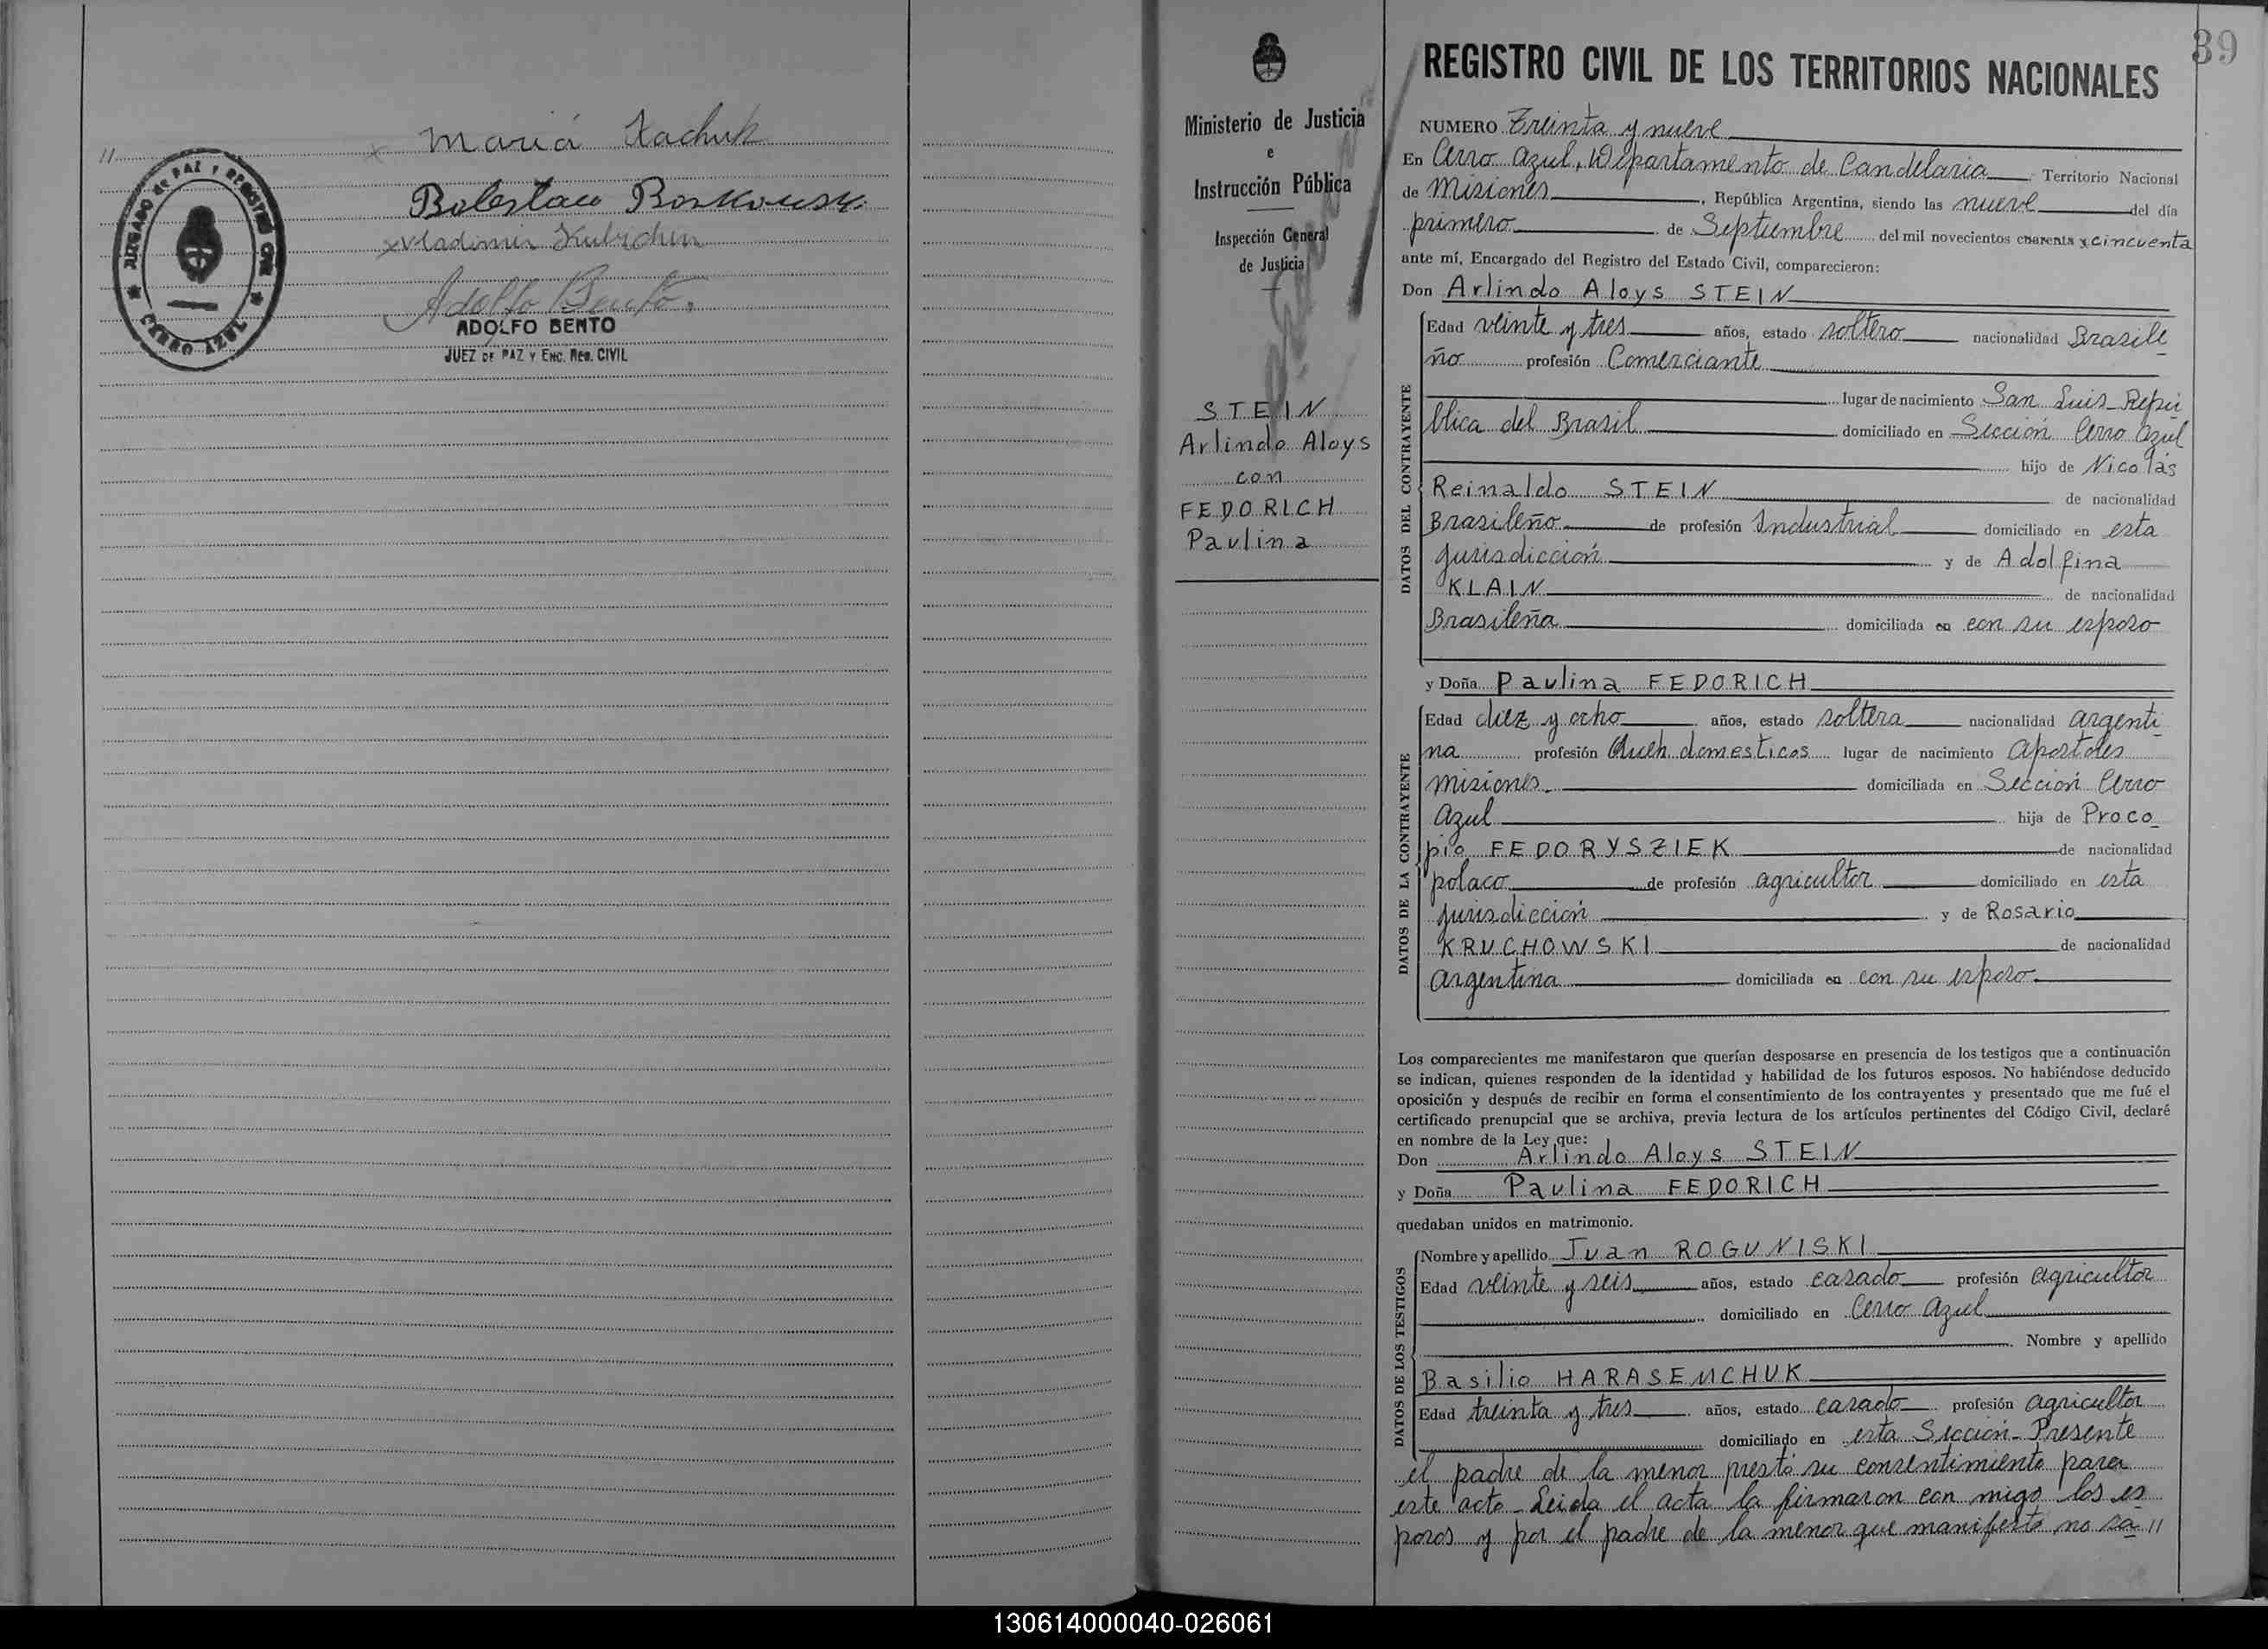 // Mariá Kachuk
Vladimir Kubichen
Adolfo Bento
ADOLFO BENTO
JUEZ DE PAZ Y ENC. REG. CIVIL
JUZGADO DE PAZ Y REGISTRO CIVIL
★ CERRO AZUL ★
Ministerio de Justicia
e
Instrucción Pública
Inspección General
de Justicia
STEIN
Arlindo Aloys
con
FEDORICH
Paulina
39
REGISTRO CIVIL DE LOS TERRITORIOS NACIONALES
NUMERO Treinta y nueve
En Cerro Azul, Departamento de Candelaria Territorio Nacional
de Misiones, República Argentina, siendo las nueve del día
primero de Septiembre del mil novecientos cuarenta y cincuenta
ante mí, Encargado del Registro del Estado Civil, comparecieron:
Don Arlindo Aloys STEIN
DATOS DEL CONTRAYENTE
Edad veinte y tres años, estado soltero nacionalidad Brasile
ño profesión Comerciante
lugar de nacimiento San Luis-Repú
blica del Brasil domiciliado en Sección Cerro Azul
hijo de Nicolás
Reinaldo STEIN de nacionalidad
Brasileño de profesión Industrial domiciliado en esta
jurisdicción y de Adolfina
KLAIN de nacionalidad
Brasileña domiciliada en con su esposo
y Doña Paulina FEDORICH
DATOS DE LA CONTRAYENTE
Edad diez y ocho años, estado soltera nacionalidad argenti
na profesión Queh. domesticos lugar de nacimiento Apostoles
Misiones. domiciliada en Sección Cerro
Azul hija de Proco
pio FEDORYSZIEK de nacionalidad
polaco de profesión agricultor domiciliado en esta
jurisdicción y de Rosario
KRUCHOWSKI de nacionalidad
argentina domiciliada en con su esposo
Los comparecientes me manifestaron que querían desposarse en presencia de los testigos que a continuación
se indican, quienes responden de la identidad y habilidad de los futuros esposos. No habiéndose deducido
oposición y después de recibir en forma el consentimiento de los contrayentes y presentado que me fué el
certificado prenupcial que se archiva, previa lectura de los artículos pertinentes del Código Civil, declaré
en nombre de la Ley que:
Don Arlindo Aloys STEIN
y Doña Paulina FEDORICH
quedaban unidos en matrimonio.
DATOS DE LOS TESTIGOS
Nombre y apellido Juan ROGUNISKI
Edad veinte y seis años, estado casado profesión agricultor
domiciliado en Cerro Azul
Nombre y apellido
Basilio HARASEMCHUK
Edad treinta y tres años, estado casado profesión agricultor
domiciliado en esta Sección-Presente
el padre de la menor prestó su consentimiento para
este acto-Leida el acta la firmaron con migo los es
posos y por el padre de la menor que manifestó no sa //
130614000040-026061